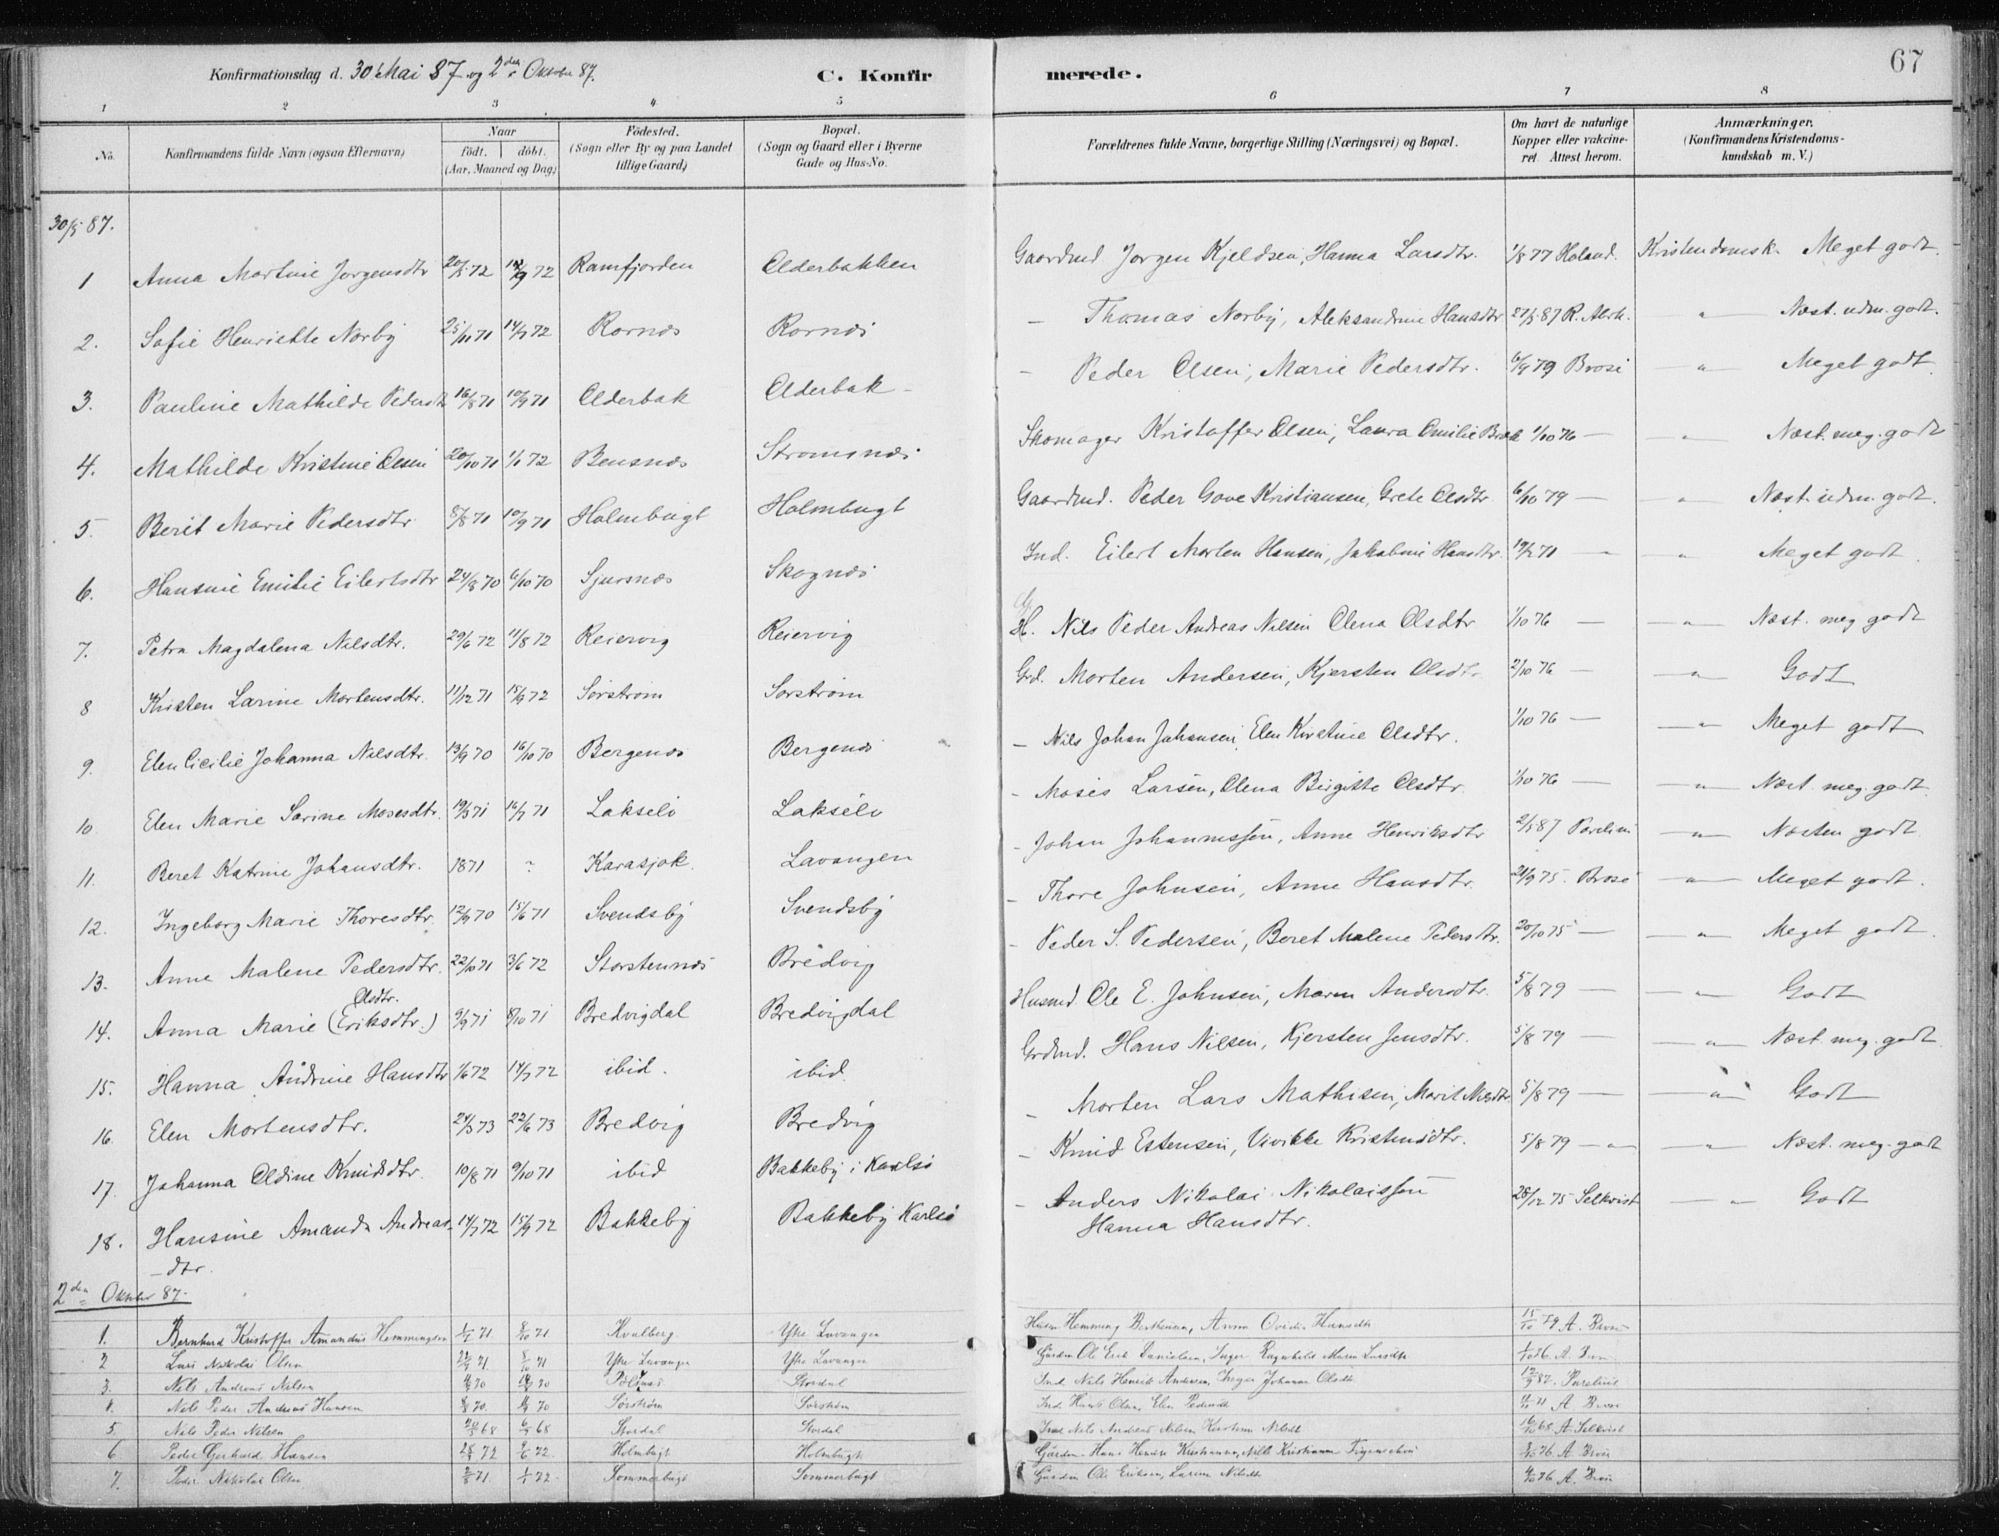 67
Konfirmationsdag d. 30 Mai 87 og 2den Oktober 87. C. Konfirmerede.
1 2 3 4 5 6 7 8
No. Konfirmandens fulde Navn (ogsaa Efternavn) Naar født. døbt. (Aar, Maaned og Dag) Fødested. (Sogn eller By og paa Landet tillige Gaard) Bopæl. (Sogn og Gaard eller i Byerne Gade og Hus-No. Forældrenes fulde Navne, borgerlige Stilling (Næringsvei) og Bopæl. Om havt de naturlige Kopper eller vakcineret. Attest herom. Anmærkninger. (Konfirmandens Kristendomskundskab m. V.)
30/5 87.
1 Anna Martine Jørgensdtr 72 72 Ramfjorden Olderbakken Gaardmd Jørgen Kjeldsen, Hanna Larsdtr. 1/8 77 Kristendomsk. Meget godt.
2. Sofie Henriette Norby 25/11 71 14/7 72 Rornæs Rornæs — Thomas Norby, Aleksandrine Hansdtr 27/5 87 " Næst. udm. godt.
3. Pauline Mathilde Pedersdtr 16/8 71 10/9 71 Olderbak Olderbak — Peder Olsen, Marie Pedersdtr. 6/9 79 Brose " Meget godt
4. Mathilde Kristine Olsen 20/10 71 1/1 72 Bensnæs Strømsnæs Skomager Kristoffer Olsen, Laura Emilie 1/10 76 — " Næst. meg. godt
5. Berit Marie Pedersdtr 8/8 71 10/9 71 Holmbugt Holmbugt Gaardmd. Peder Gove Kristiansen, Grete Olsdtr 6/10 79 — " Næst. udm. godt.
6. Hansine Emilie Eilertsdtr 24/8 70 6/10 70 Sjursnæs Skognæs Ind. Eilert Morten Hansen, Jakobine Hansdtr. 71 — " Meget godt.
7. Petra Magdalena Nilsdtr. 29/6 72 11/8 72 Reiervig Reiervig Nils Peder Andreas Nilsen Olena Olsdtr 1/10 76 — " Næst. meg godt
8 Kristen Larine Mortensdtr. 11/12 71 15/9 72 Sørstrøm Sørstrøm Grd. Morten Andersen, Kjersten Olsdtr 2/10 76 — " Godt
9. Elen Cicilie Johanna Nilsdtr. 13/9 70 16/10 70 Bergenæs Bergenæs — Nils Johan Johansen, Elen Kirstine Olsdtr. 1/10 76 — " Meget godt
10. Elen Marie Sarine Mosesdtr. 19/3 71 16/7 71 Lakselv Lakselv — Moses Larsen, Olena Birgitte Olsdtr. 1/10 76 — " Næst. meg. godt.
11. Beret Katrine Johansdtr. 1871 ? Karasjok. Lavangen — Johan Johannessen, Anne Henriksdtr 2/5 87 " Næsten godt
12. Ingeborg Marie Thoresdtr. 12/9 70 15/6 71 Svendsby Svendsby — Thore Johnsen, Anne Hansdtr. 21/9 75. Brose " Meget godt.
13. Anne Malene Pedersdtr. 22/10 71 3/6 72 Storstennæs Bredvig — Peder S. Pedersen, Beret Malene Pedersdtr. 20/10 75 — " Meget godt.
14. Anna Marie (Eriksdtr.) Olsdtr. 9/9 71 8/10 71 Bredvigdal Bredvigdal Husmd Ole E. Johnsen, Maren Andersdtr. 5/8 79 — " Godt
15. Hanna Andrine Hansdtr 1/6 72 14/7 72 ibid. ibid. Grdmd. Hans Nilsen, Kjersten Jensdtr. 5/8 79 — " Næst. meg. godt
16. Elen Mortensdtr. 24/3 73 22/6 73 Bredvig Bredvig — Morten Lars Mathisen, Marit 5/8 79 — " Godt
17. Johanna Oldine Knudsdtr. 10/8 71 9/10 71 ibid Bakkeby i Karlsø — Knud Estensen, Vivikke Kristensdtr. 5/8 79 — " Næst. meg. godt
18. Hansine Amanda Andreas- 14/7 72 15/9 72 Bakkeby Bakkeby Karlsø — Anders Nikolai Nikolaissen 28/12 75 Selkvist " Godt
dtr. Hanna Hansdtr.
2den Oktober 87.
1. Bernhard Kristoffer Amandus Hemmingsen 71 8/10 71 Kvalberg Ytre Lavangen Hemming Berthinsen, Anna Ovidia Hansdtr 15/10 79 A. Brose
2 Lars Nikolai Olsen 71 8/10 71 Ytre Lavangen Ytre Lavangen Gårdm Ole Erik Danielsen, Inger Ragnhild Maria Larsdtr 76. A. Brose
3. Nils Andreas Nilsen 70 70 Stordal Ind Nils Henrik Andersen, Inger Johanne Olsdtr 12/9 87.
4. Nils Peder Andreas Hansen 70. 70 Sørstrøm Sørstrøm Ind. Hans Olsen, Elen Pedersdtr 71 A Brose
5. Nils Peder Nilsen 68 68 Stordal Stordal Ind Nils Andreas Nilsen Kirsten Nilsdtr 16/10 68 A. Selkvist
6 Peder Gjerhard Hansen 72 72 Holmbugt Holmbugt Gårdm. Hans Henrik Kristiansen, Kristianna 76. A. Brose
7. Peder Nikolai Olsen 71. 72 Sommerbugt Sommerbugt Gårdm Ole Eriksen, Larine Nilsdtr 76 A. Brose